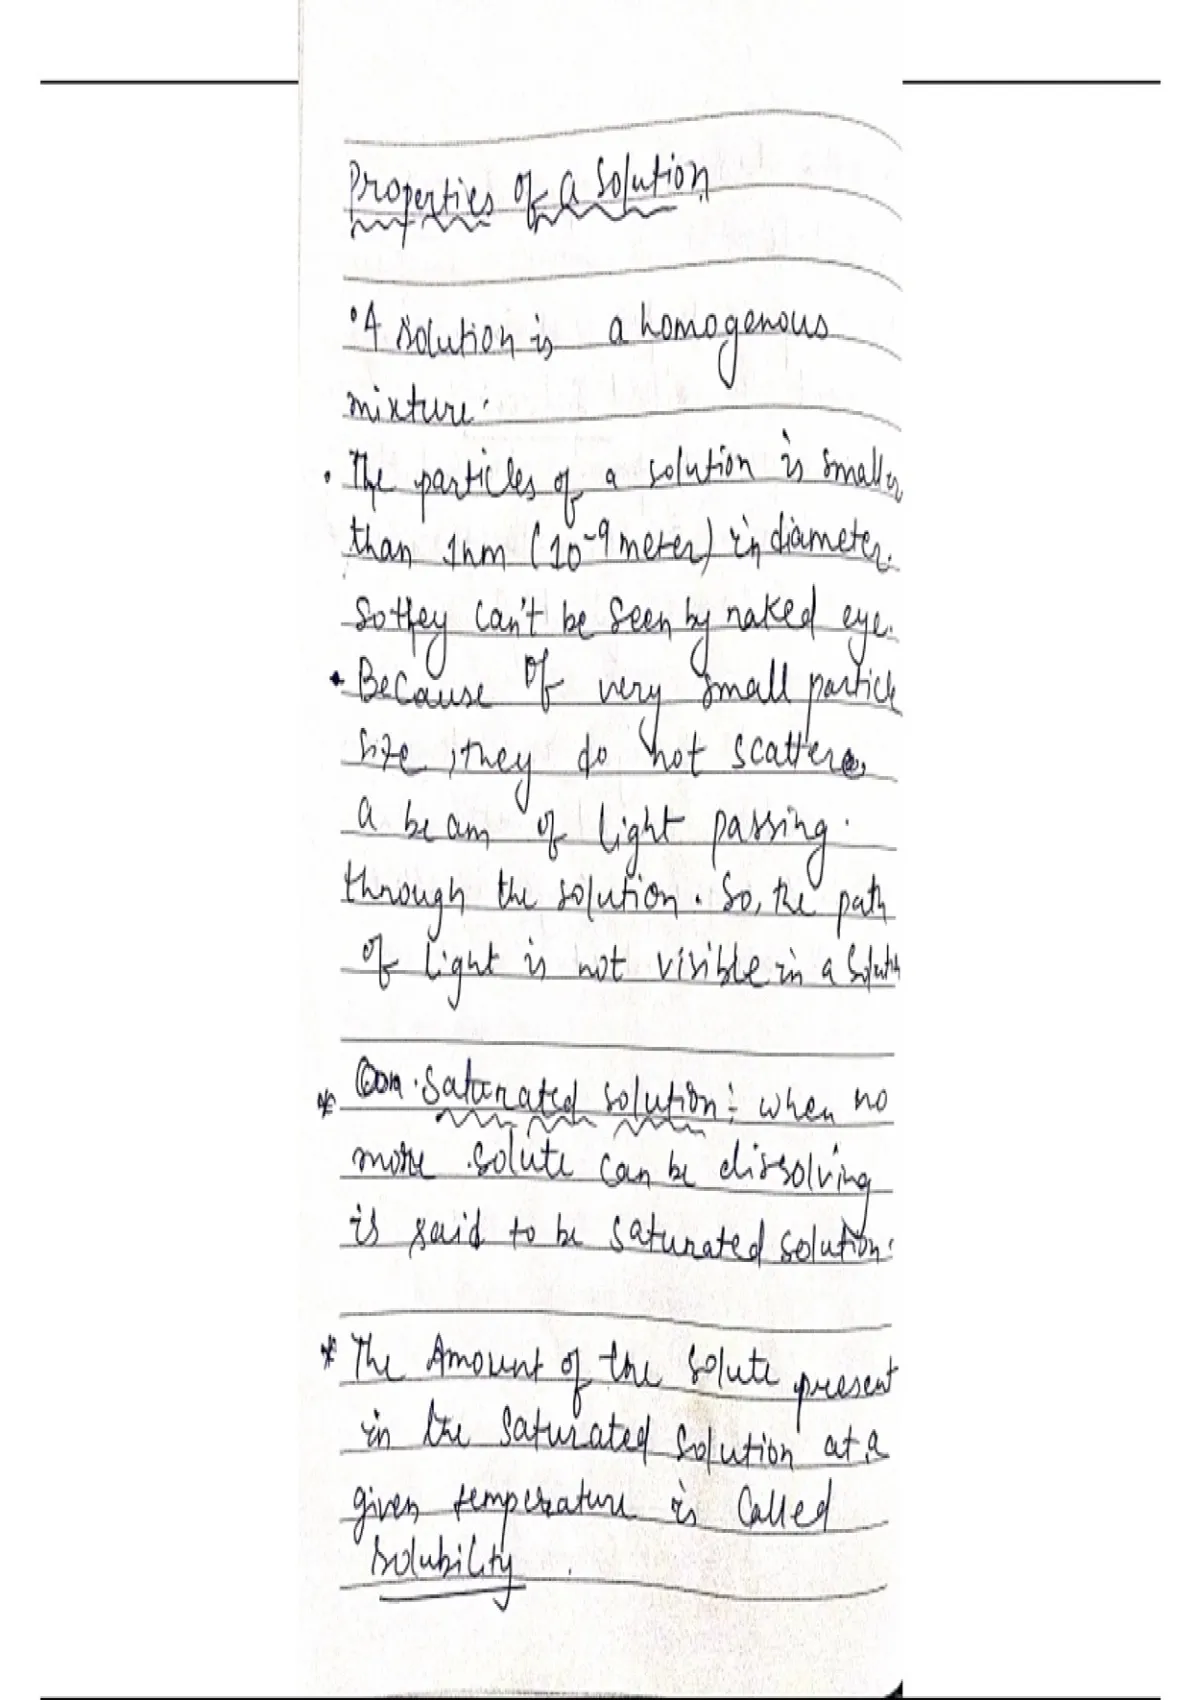 Properties of a Solution
• A solution is a homogenous
mixture.
• The particles of a solution is smaller
than 1nm (10-9 meter) in diameter.
So they can't be seen by naked eye.
• Because of very small particle
size, they do not scatter
a beam of light passing
through the solution. So, the path
of light is not visible in a solution
* Saturated solution: when no
more solute can be dissolving
is said to be saturated solution.
* The Amount of the solute present
in the saturated solution at a
given temperature is called
solubility.